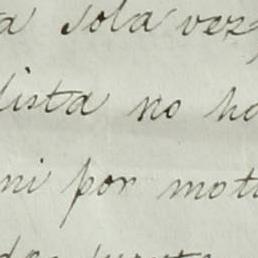 a sola vez,
lista no ha
ni por moti